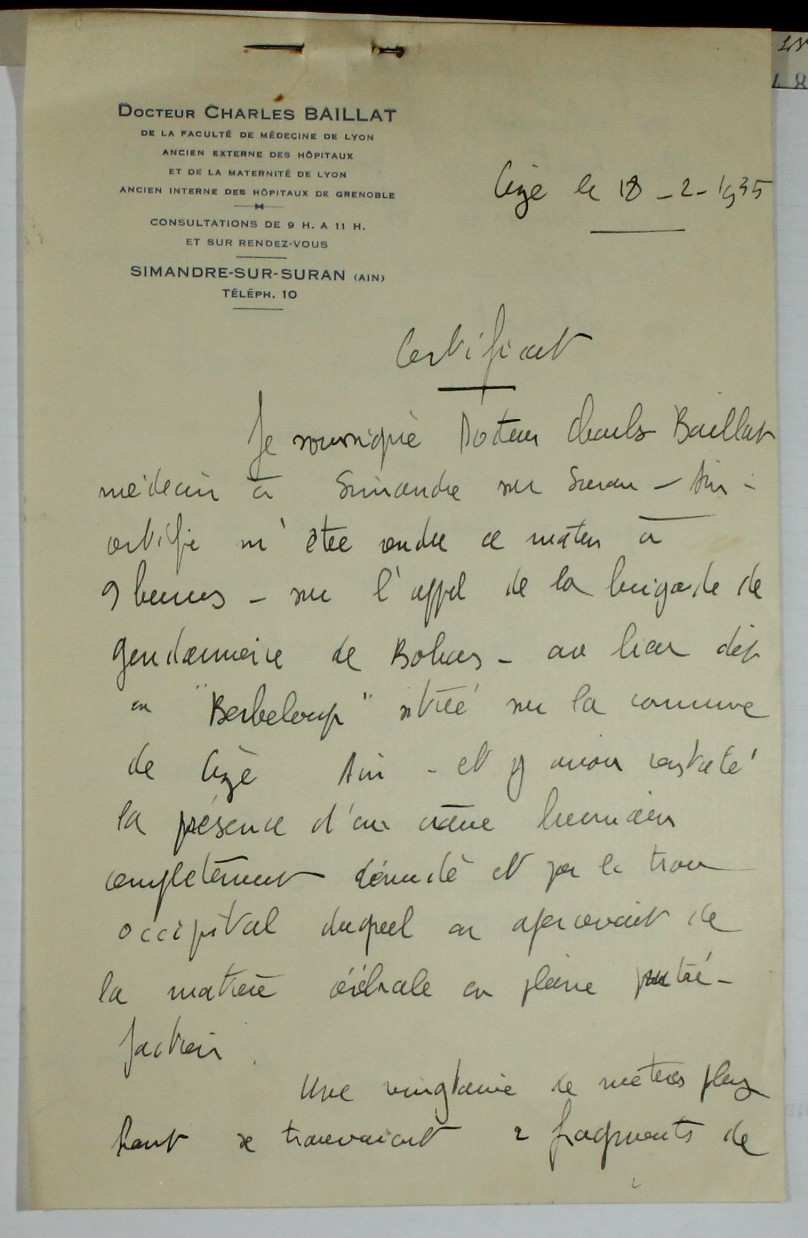 DOCTEUR CHARLES BAILLAT
DE LA FACULTÉ DE MÉDECINE DE LYON
ANCIEN EXTERNE DES HÔPITAUX
ET DE LA MATERNITÉ DE LYON
ANCIEN INTERNE DES HÔPITAUX DE GRENOBLE
CONSULTATIONS DE 9 H. A 11 H.
ET SUR RENDEZ-VOUS
SIMANDRE-SUR-SURAN (AIN)
TÉLÉPH. 10
Cize le 18 - 2 - 1935
Certificat
Je soussigné Docteur Charles Baillat
médecin à Simandre sur Suran - Ain -
certifie m'être rendu ce matin à
9 heures - sur l'appel de la brigade de
gendarmerie de Bohas - au lieu dit
en "Berbeloup" situé sur la commune
de Cize Ain - et y avoir constaté
la présence d'un crâne humain
complètement dénudé et par le trou
occipital duquel on apercevait de
la matière cérébrale en pleine putré-
faction.
Une vingtaine de mètres plus
haut se trouvaient 2 fragments de